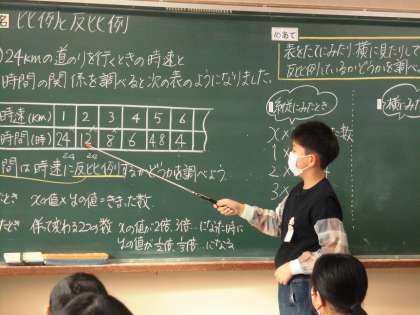 名 比例と反比例
24kmの道のりを行くときの時速と
時間の関係を調べると次の表のようになりました。
時速(km) 1 2 3 4 5 6
時間(時) 24 12 8 6 4.8 4
24 24
間は時速に反比例するかどうかを調べよう。
とき xの値×yの値=きまった数
たとき 伴って変わる2つの数 xの値が2倍、3倍…になった時に
yの値が 倍、 倍…になる
めあて
表をたてにみたり横に見たりして
反比例しているかどうかを調べ
表を縦にみたとき
横にみた
x× 数
1×
2×
3×